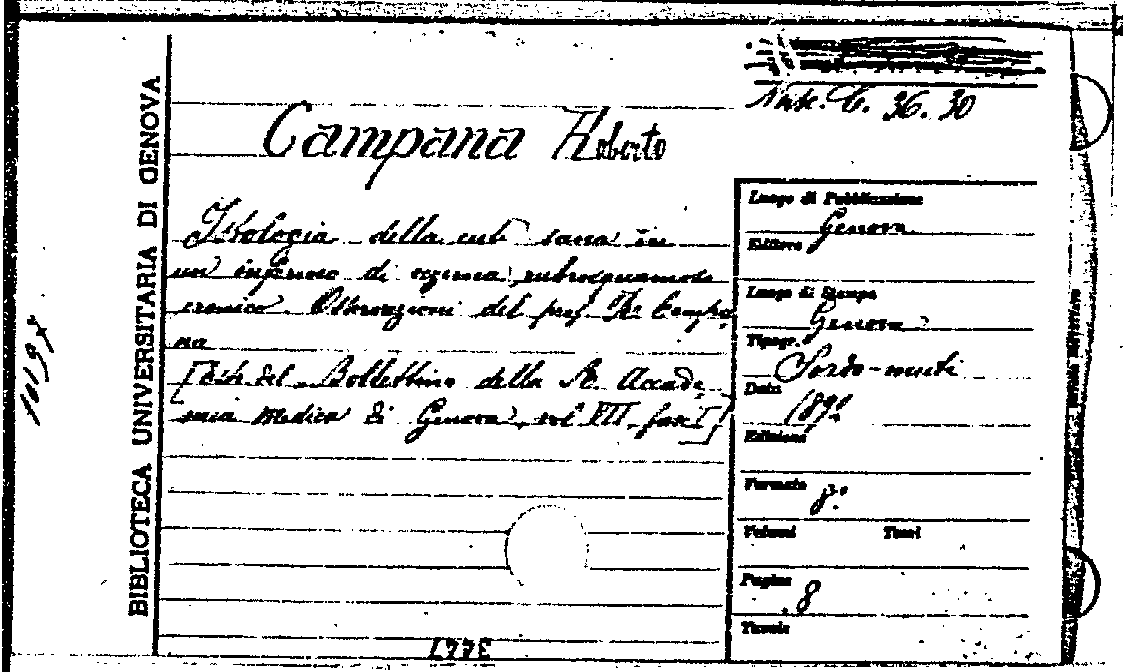 Misc. C. 36. 30
Campana Roberto
Istologia della cute sana in
un infermo di eczema rubrosquamoso
cronico. Osservazioni del prof. R. Campa-
na
[Estr. del Bollettino della R. Accade-
mia Medica di Genova, vol VII, fasc I]
BIBLIOTECA UNIVERSITARIA DI GENOVA
Luogo di Pubblicazione
Genova
Editore
Luogo di Stampa
Genova
Tipogr.
Sordo-muti
Data
Edizione
Formato 8°
Volumi Tomi
Pagine 8
Tavole